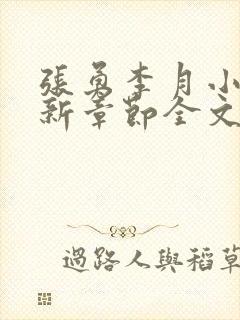 張勇李月小
新章節全文
過路人與稻草